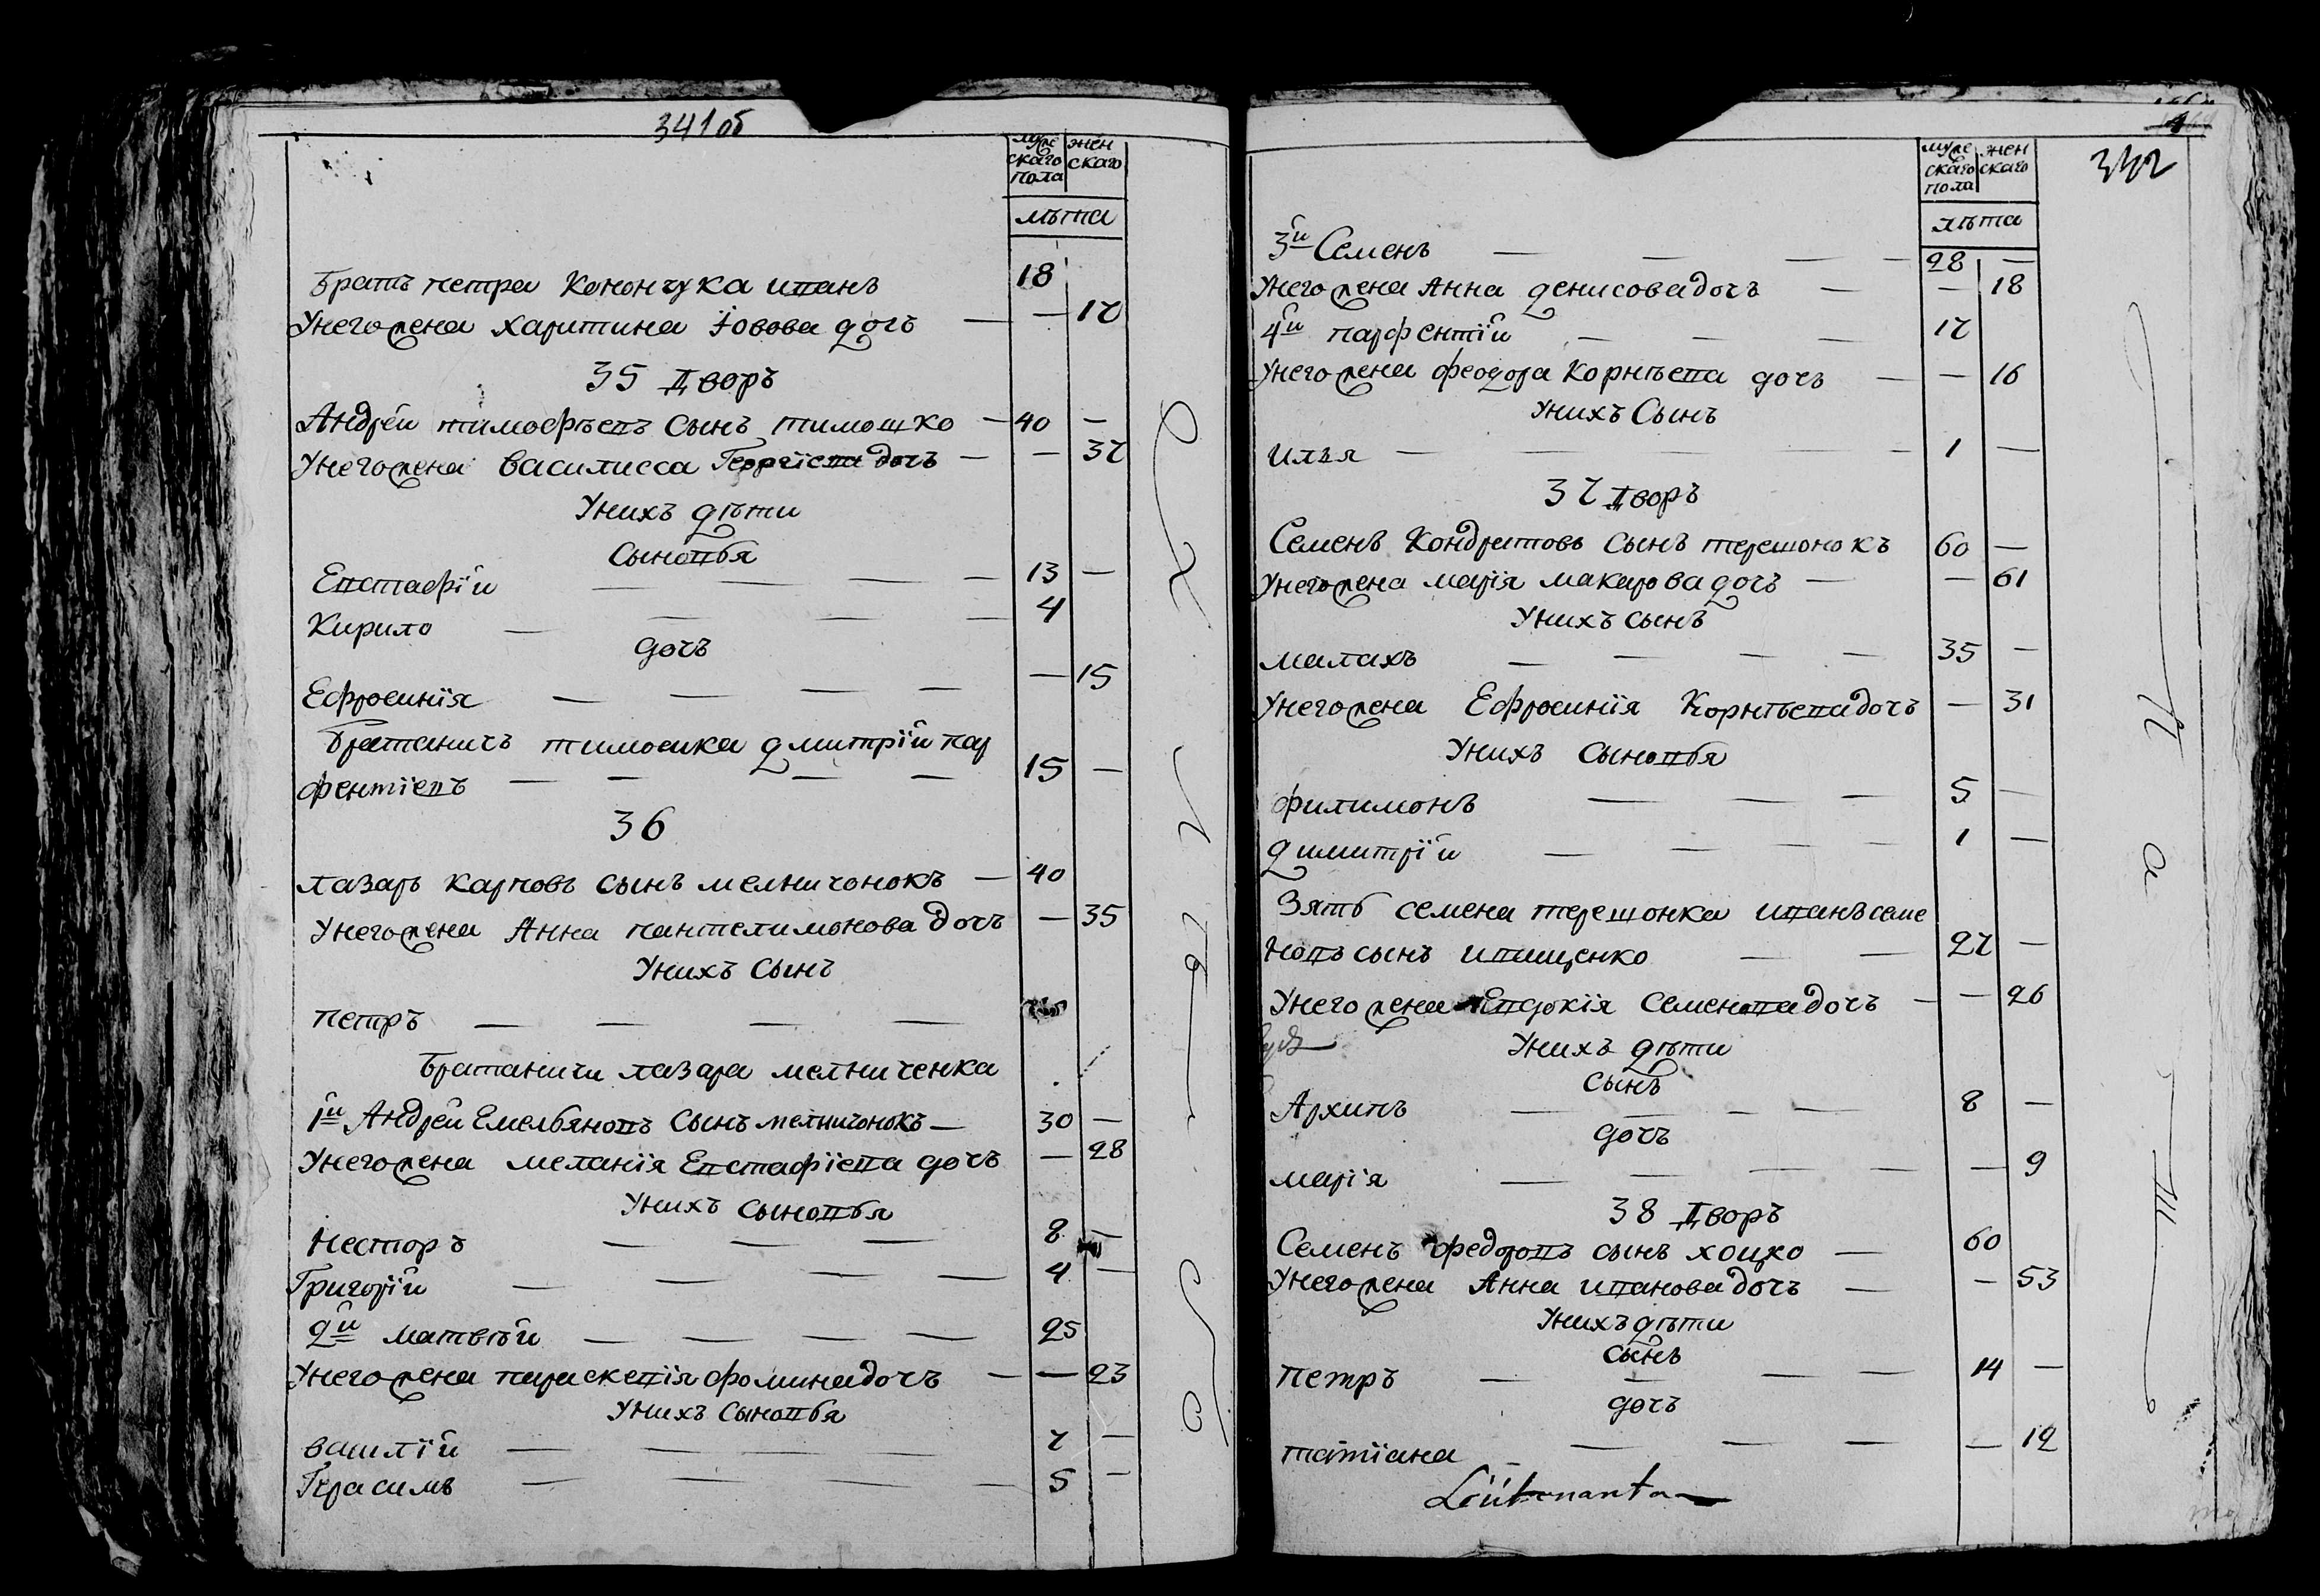 341об
муже
скаго
пола
жен
скаго
лѣта
Братъ петра Конончука иванъ 18
Унего жена харитина Іовова дочь — — 17
35 Дворъ
Андрей тимофѣевъ Сынъ тимошко — 40 —
Унего жена василисса Георгіева дочь — — 37
Унихъ дѣти
Сыновья
Евстафій — — — 13 —
Кирило — — — — 4
дочь
Ефросинія — — — — — 15
Братаничъ тимошка дмитрій пар
фентіевъ — — — — 15 —
36
лазарь карповъ сынъ мелничонокъ — 40
Унего жена Анна пантелимонова дочь — 35
Унихъ Сынъ
петръ — — — —
Братаничи лазара мелниченка
1й Андрей Емельяновъ Сынъ мелничонокъ — 30 —
Унего жена меланія Евстафіева дочь — 28
Унихъ Сыновья
Несторъ — — — 8 —
Григорій — — — — 4 —
2й матвѣй — — — — 25
Унего жена параскевія фомина дочь — — 23
Унихъ Сыновья
василій — — — — 7 —
Герасимъ — — — — 5 —
342
муже
скаго
пола
жен
скаго
лѣта
3й Семенъ — — — — 28 —
Унего жена Анна денисова дочь — — 18
4й парфентій — — — 17
Унего жена феодора Корнѣева дочь — — 16
Унихъ Сынъ
илья — — — 1 —
37 Дворъ
Семенъ Кондратовъ сынъ терешонокъ 60 —
Унего жена марія макарова дочь — — 61
Унихъ сынъ
малахъ — — — — 35 —
Унего жена Ефросинія Корнѣева дочь — 31
Унихъ Сыновья
филимонъ — — — 5 —
димитрій — — — — 1 —
Зять семена терешонка иванъ семе
новъ сынъ иващенко — — 27 —
Унего жена Евдокія Семенова дочь — — 26
Унихъ дѣти
сынъ
Архипъ — — — — 8 —
дочь
марія — — — — — 9
38 Дворъ
Семенъ федоровъ сынъ хоцко — 60
Унего жена Анна иванова дочь — — 53
Унихъ дѣти
сынъ
петръ — — — — 14 —
дочь
татіана — — — — 12